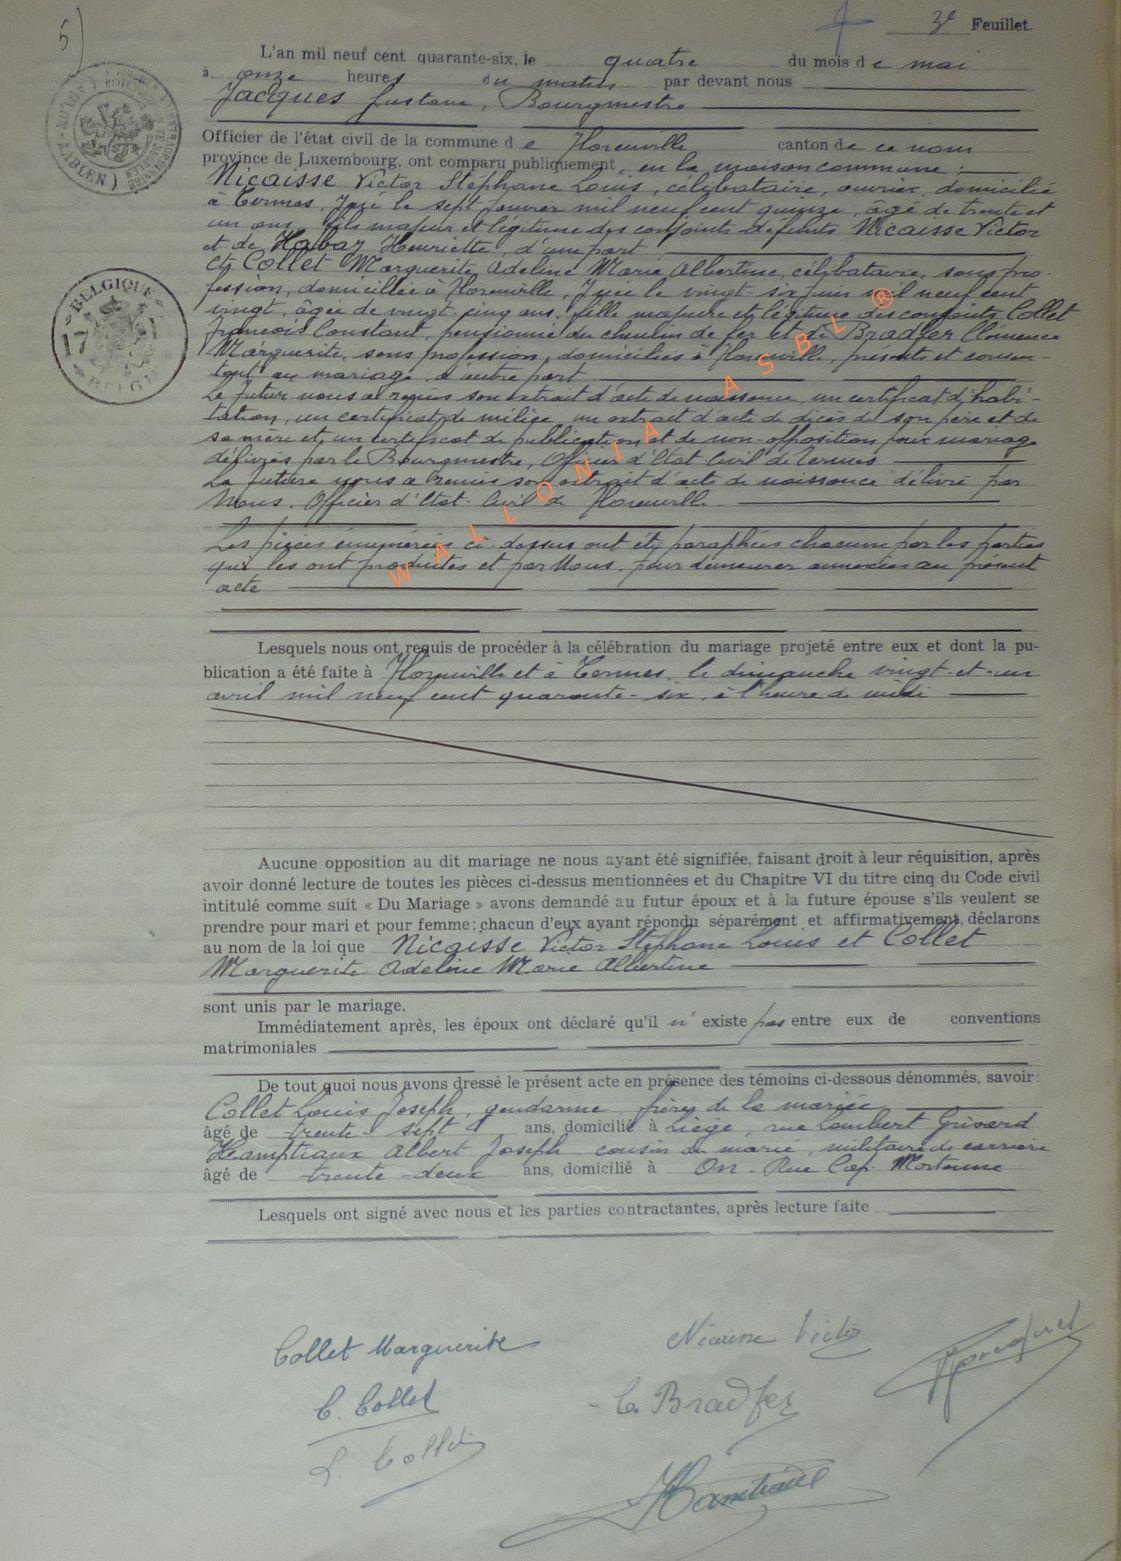 5)
3e Feuillet.
L'an mil neuf cent quarante-six, le quatre du mois de mai
à onze heures du matin par devant nous
Jacques Gustave, Bourgmestre
Officier de l'état civil de la commune de Florenville canton de ce nom
province de Luxembourg, ont comparu publiquement, en la maison commune :
Nicaisse Victor Stéphane Louis, célibataire, ouvrier, domicilié
à Termes, né le sept janvier mil neuf cent quinze, âgé de trente et
un ans, fils majeur et légitime des conjoints défunts Nicaisse Victor
et de Habaz Henriette, d'une part
Et Collet Marguerite Adeline Marie Albertine, célibataire, sans pro-
fession, domiciliée à Florenville, née le vingt-six juin mil neuf cent
vingt, âgée de vingt-cinq ans, fille majeure et légitime des conjoints Collet
François Constant, pensionné du chemin de fer et de Bradfer Clémence
Marguerite, sans profession, domiciliés à Florenville, présents et consen-
tant au mariage, d'autre part
Le futur nous a remis son extrait d'acte de naissance, un certificat d'habi-
tation, un certificat de milice, un extrait d'acte de décès de son père et de
sa mère et un certificat de publication et de non-opposition pour mariage
délivrés par le Bourgmestre, Officier d'Etat Civil de Termes
La future nous a remis son extrait d'acte de naissance délivré par
Nous, Officier d'Etat-Civil de Florenville
Les pièces énumérées ci-dessus ont été paraphées chacune par les parties
qui les ont produites et par Nous, pour demeurer annexées au présent
acte
Lesquels nous ont requis de procéder à la célébration du mariage projeté entre eux et dont la pu-
blication a été faite à Florenville et à Termes, le dimanche vingt-et-un
avril mil neuf cent quarante-six, à l'heure de midi
Aucune opposition au dit mariage ne nous ayant été signifiée, faisant droit à leur réquisition, après
avoir donné lecture de toutes les pièces ci-dessus mentionnées et du Chapitre VI du titre cinq du Code civil
intitulé comme suit « Du Mariage » avons demandé au futur époux et à la future épouse s'ils veulent se
prendre pour mari et pour femme; chacun d'eux ayant répondu séparément et affirmativement, déclarons
au nom de la loi que Nicaisse Victor Stéphane Louis et Collet
Marguerite Adeline Marie Albertine
sont unis par le mariage.
Immédiatement après, les époux ont déclaré qu'il n'existe pas entre eux de conventions
matrimoniales
De tout quoi nous avons dressé le présent acte en présence des témoins ci-dessous dénommés, savoir:
Collet Louis Joseph, gendarme, frère de la mariée
âgé de trente-sept ans, domicilié à Liège, rue Lambert Grisard
Hamptiaux Albert Joseph cousin du marié, militaire de carrière
âgé de trente-deux ans, domicilié à On. Rue Cap. Mortenne
Lesquels ont signé avec nous et les parties contractantes, après lecture faite
BELGIQUE
17
BELGIË
WALLONIA ASBL ®
Collet Marguerite
Nicaisse Victor
C. Collet
C. Bradfer
L. Collet
Hamptiaux